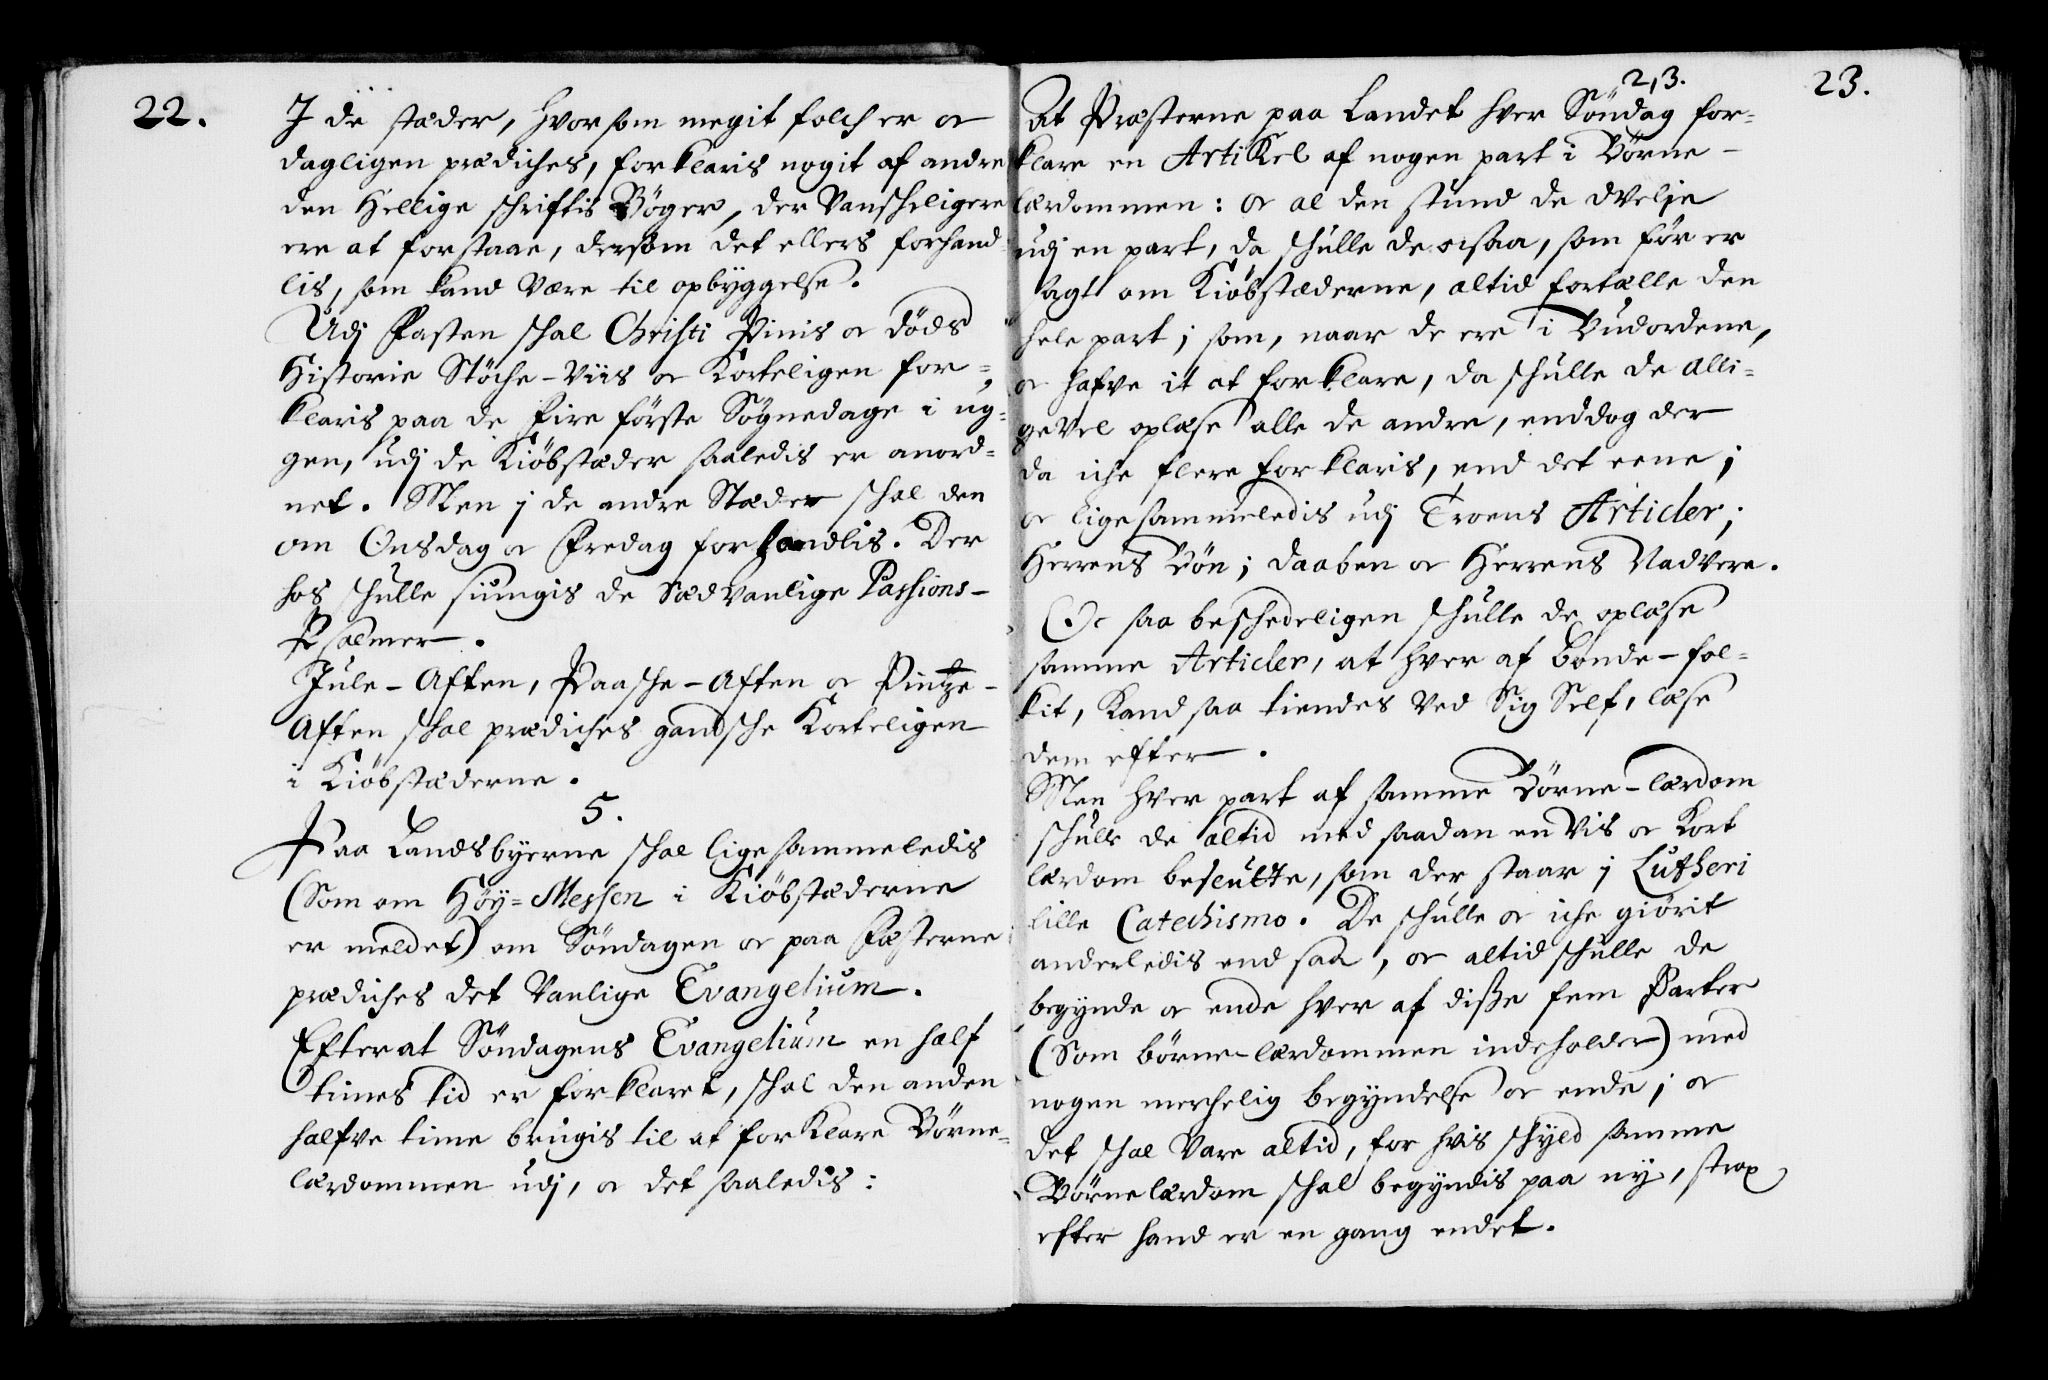 22.
J de stæder, hvorsom megit folch er oc
dagligen prædiches, forklaris nogit af andre
den Hellige schriftis Bøger, der Vanscheligere
ere at forstaae, dersom det ellers forhand-
lis, som kand være til opbyggelse.
Udj Fasten schal Christi Pinis oc döds
Historie Stöche-Viis oc Korteligen for-
klaris paa de fire förste Sögnedage i ug-
gen, udj de Kiöbstæder saaledis er anord-
net. Men j de andre Stæder schal den
om Onsdag oc Fredag forhandlis. Der
hos schulle siungis de sædvanlige Passions-
Psalmer.
Jule-Aften, Paasche-Aften oc Pintze-
Aften schal prædiches gandsche Korteligen
i Kiöbstæderne.
5.
Paa Landsbyerne schal ligesammeledis
(Som om Höy-Messen i Kiöbstæderne
er meldet) om Söndagen oc paa Fæsterne
prædiches det Vanlige Evangelium.
Efterat Söndagens Evangelium en half
times tid er forklaret, schal den anden
halfve time brugis til at forklare Börne-
lærdommen udj, oc det saaledis:
23.
2,3.
At Præsterne paa Landet hver Söndag for-
klare en Artikel af nogen part i Börne-
lærdommen: oc al den stund de dvelje
udj en part, da schulle de ocsaa, som för er
sagt om Kiöbstæderne, altid fortælle den
hele part; som, naar de ere i Budordene,
oc hafve it at forklare, da schulle de alli-
gevel oplæse alle de andre, enddog der
da iche flere forklaris, end det eene;
oc ligesammeledis udj Troens Articler;
Herrens Bön; Daaben oc Herrens Nadvere.
Oc saa beschedeligen schulle de oplæse
samme Articler, at hver af bonde-fol-
kit, Kand saa tiendes ved Sig Self, læse
dem efter.
Men hver part af samme Börne-lærdom
schulle de altid med saadan en vis oc Kort
lærdom beslutte, som der staar j Lutheri
lille Catechismo. De schulle oc iche giörit
anderledis end saa, oc altid schulle de
begynde oc ende hver af disse fem Parter
(Som börne-lærdommen indeholder) med
nogen merchelig begyndelse oc ende; oc
det schal Vare altid, for hvis schyld samme
Börnelærdom schal begyndis paa ny, strax
efter hand er en gang endet.